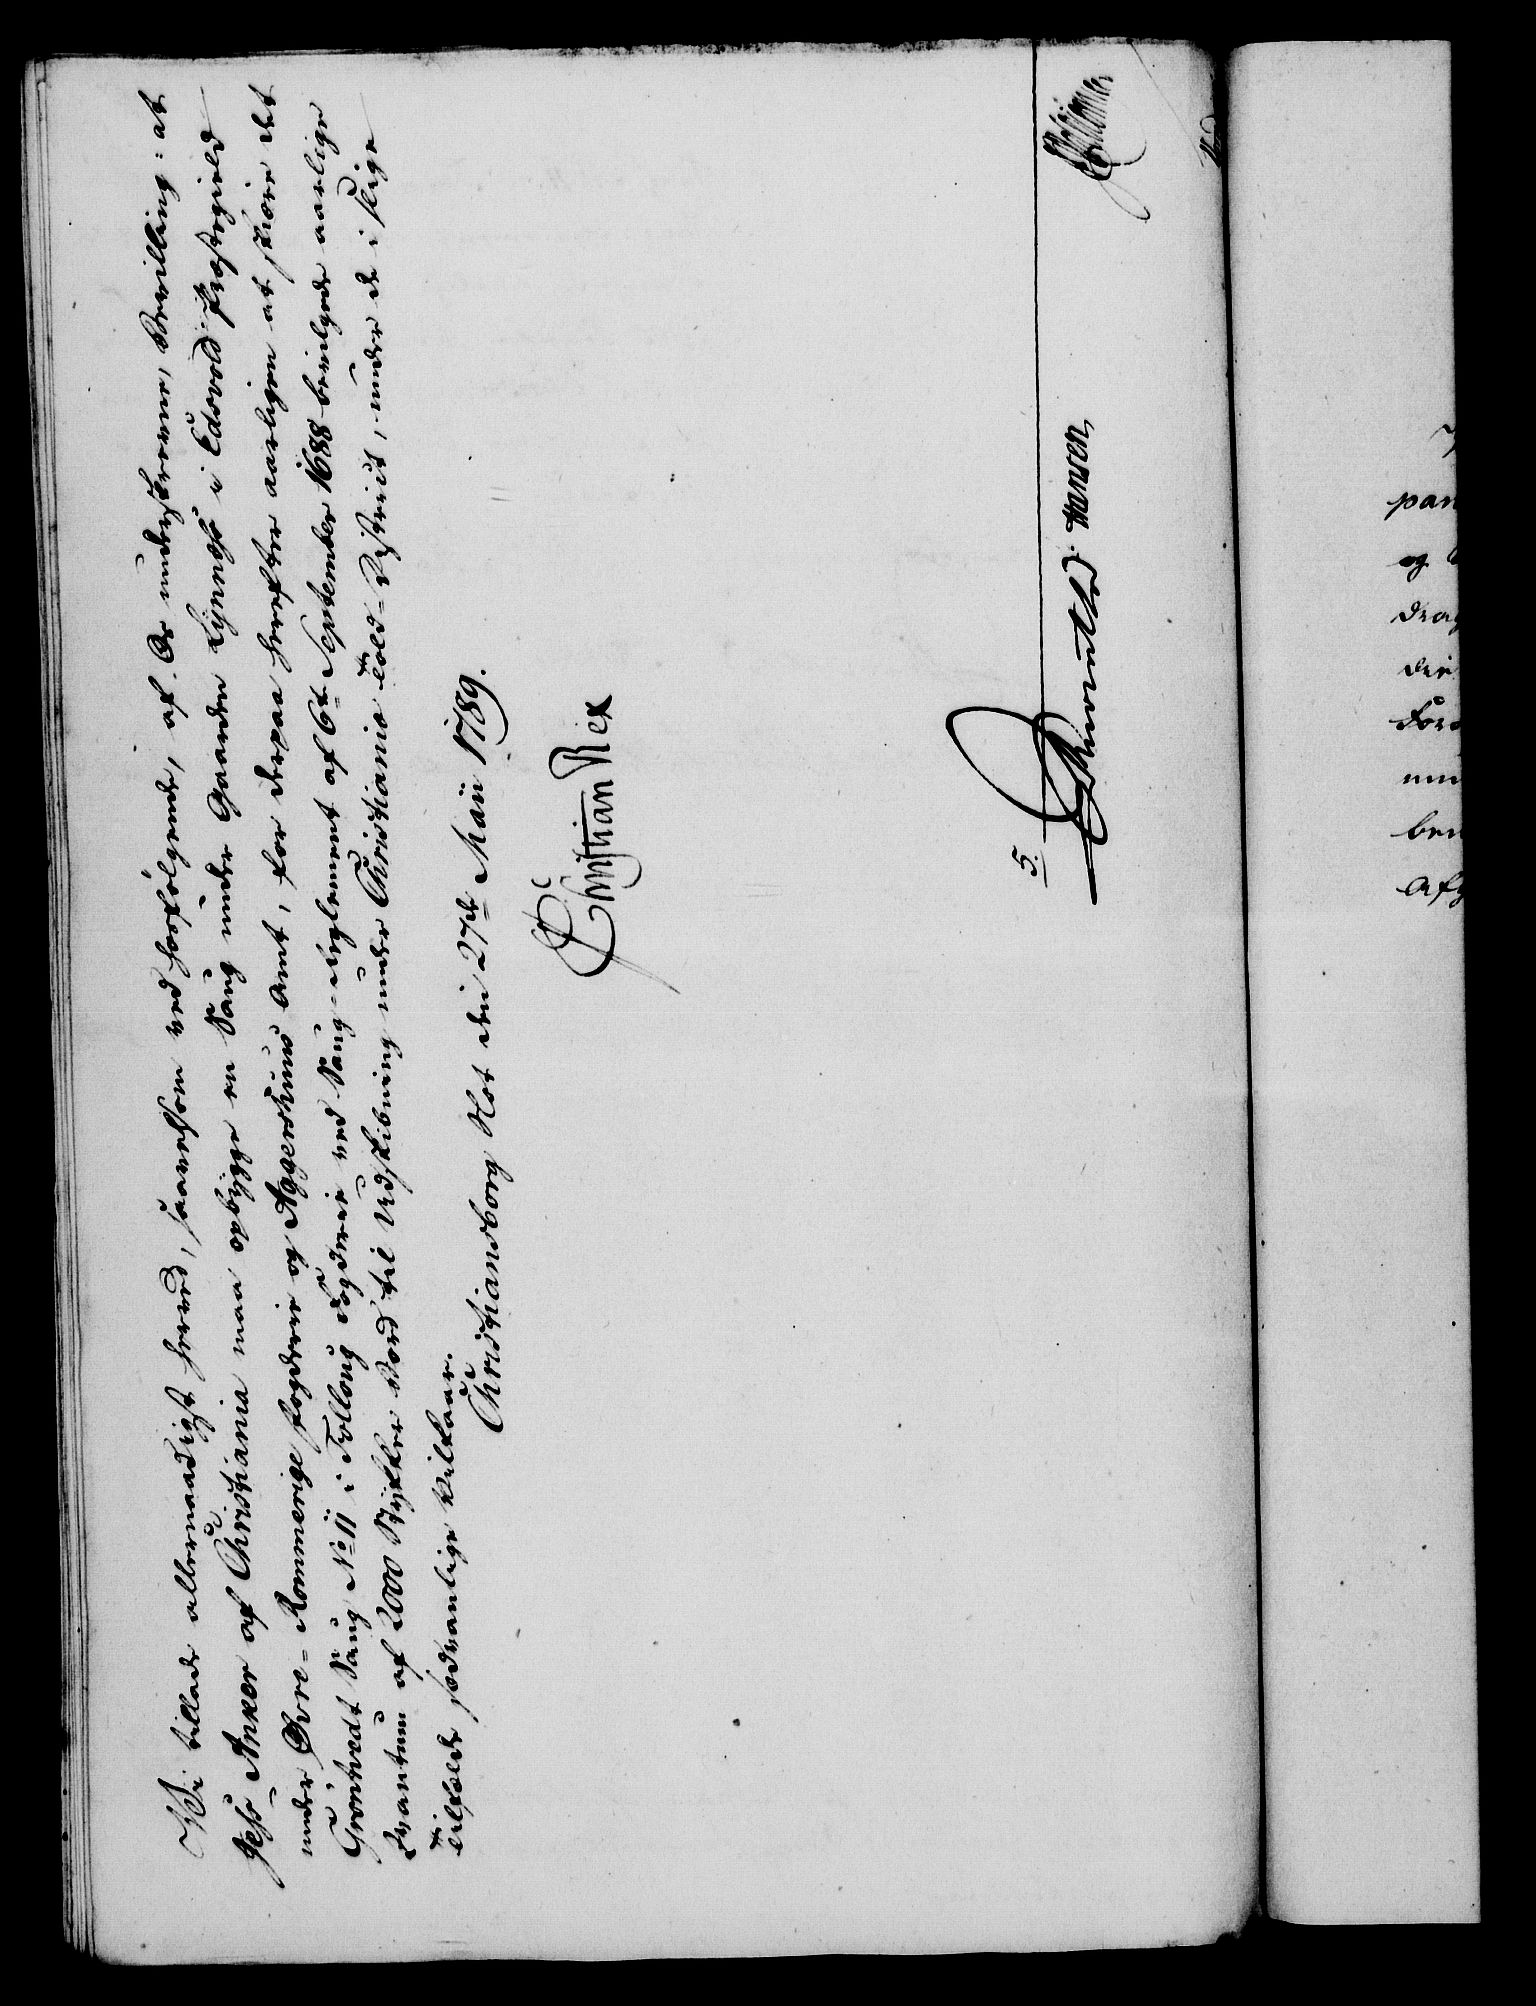 Wi tillade allernaadigst herved, saavelsom ved hosfølgende, af Os underskrevne, Bevilling: at
Jess Anker af Christiania maa opbygge en Saug under Gaarden Lynnæss i Edsvold Præstegield
under Øvre-Rommerige fogderie og Aggershuus Amt, for derpaa herefter aarligen at skiære det
Grøntvedt Saug No 11 i Follong Fogderie ved Saug-Reglement af 6t September 1688 bevilgede aarlige
Qvantum af 2000 Stykker Bord til Udskibning under Christiania Told-District, under de i slige
Tilfælde sædvanlige Vilkaar.
Christiansborg Slot den 27de Maii 1789.
Christian Rex
5.
Hansen
pan
og
drag
die
For
um
ben
Afg